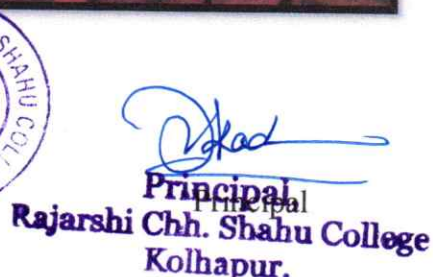 SHAHU COL
Principal,
Principal
Rajarshi Chh. Shahu College
Kolhapur.